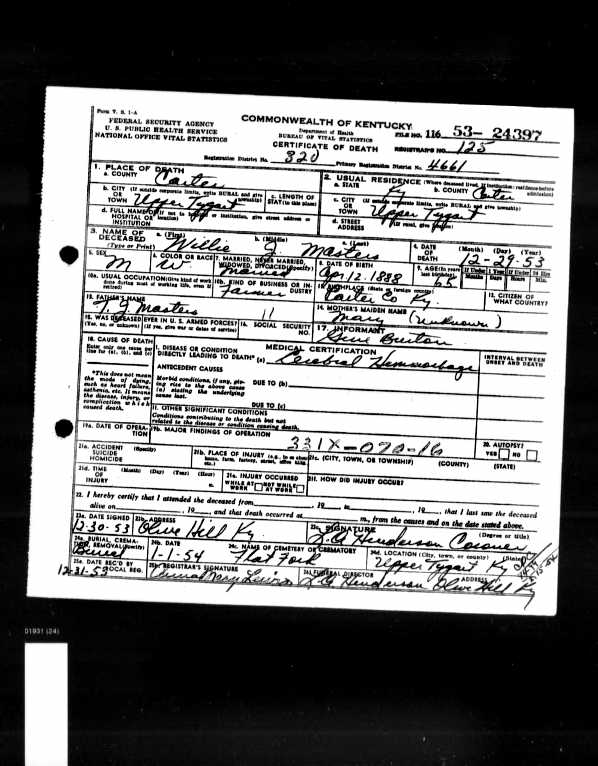 Form V. S. 1-A
FEDERAL SECURITY AGENCY
U. S. PUBLIC HEALTH SERVICE
NATIONAL OFFICE VITAL STATISTICS
COMMONWEALTH OF KENTUCKY
Department of Health
BUREAU OF VITAL STATISTICS
CERTIFICATE OF DEATH
FILE NO. 116 53- 24397
REGISTRAR'S NO. 125
Registration District No. 320
Primary Registration District No. 4661
1. PLACE OF DEATH
a. COUNTY Carter
2. USUAL RESIDENCE (Where deceased lived. If institution: residence before admission)
a. STATE Ky b. COUNTY Carter
b. CITY (If outside corporate limits, write RURAL and give township)
OR
TOWN Upper Tygart
c. LENGTH OF STAY (in this place)
c. CITY (If outside corporate limits, write RURAL and give township)
OR
TOWN Upper Tygart
d. FULL NAME OF (If not in hospital or institution, give street address or location)
HOSPITAL OR
INSTITUTION
d. STREET ADDRESS (If rural, give
3. NAME OF DECEASED
(Type or Print)
a. (First) Willie b. (Middle) J c. (Last) Masters
4. DATE OF DEATH (Month) (Day) (Year)
12-29-53
5. SEX M
6. COLOR OR RACE W
7. MARRIED, NEVER MARRIED, WIDOWED, DIVORCED (Specify) Married
8. DATE OF BIRTH Apr. 12. 1888
9. AGE (In years last birthday) 65
If Under 1 Year Months Days
If Under 24 Hrs Hours Min.
10a. USUAL OCCUPATION (Give kind of work done during most of working life, even if retired)
10b. KIND OF BUSINESS OR INDUSTRY
Farmer
11. BIRTHPLACE (State or foreign country)
Carter Co Ky.
12. CITIZEN OF WHAT COUNTRY?
13. FATHER'S NAME
T. J. Masters
14. MOTHER'S MAIDEN NAME
Mary (Unknown)
15. WAS DECEASED EVER IN U. S. ARMED FORCES?
(Yes, no, or unknown) (If yes, give war or dates of service)
16. SOCIAL SECURITY NO.
17. INFORMANT
18. CAUSE OF DEATH
Enter only one cause per line for (a), (b), and (c)
MEDICAL CERTIFICATION
I. DISEASE OR CONDITION
DIRECTLY LEADING TO DEATH* (a) Cerebral Hemorrhage
INTERVAL BETWEEN ONSET AND DEATH
*This does not mean the mode of dying, such as heart failure, asthenia, etc. It means the disease, injury, or complication which caused death.
ANTECEDENT CAUSES
Morbid conditions, if any, giving rise to the above cause (a) stating the underlying cause last.
DUE TO (b)
DUE TO (c)
II. OTHER SIGNIFICANT CONDITIONS
Conditions contributing to the death but not related to the disease or condition causing death.
19a. DATE OF OPERATION
19b. MAJOR FINDINGS OF OPERATION
331X-070-16
20. AUTOPSY?
YES NO
21a. ACCIDENT (Specify)
SUICIDE
HOMICIDE
21b. PLACE OF INJURY (e.g., in or about home, farm, factory, street, office bldg., etc.)
21c. (CITY, TOWN, OR TOWNSHIP) (COUNTY) (STATE)
21d. TIME OF INJURY (Month) (Day) (Year) (Hour) m.
21e. INJURY OCCURRED
WHILE AT WORK NOT WHILE AT WORK
21f. HOW DID INJURY OCCUR?
22. I hereby certify that I attended the deceased from , 19 , to , 19 , that I last saw the deceased
alive on , 19 , and that death occurred at m., from the causes and on the date stated above.
23a. DATE SIGNED 12-30-53
23b. ADDRESS Olive Hill Ky.
23c. SIGNATURE (Degree or title)
Henderson Coroner
24a. BURIAL, CREMATION, REMOVAL (Specify) Burial
24b. DATE 1-1-54
24c. NAME OF CEMETERY OR CREMATORY
Flat Fork
24d. LOCATION (City, town, or county) (State)
Upper Tygart Ky
25a. DATE REC'D BY LOCAL REG. 12-31-53
25b. REGISTRAR'S SIGNATURE
26. FUNERAL DIRECTOR ADDRESS
Henderson Olive Hill Ky
01931 (24)